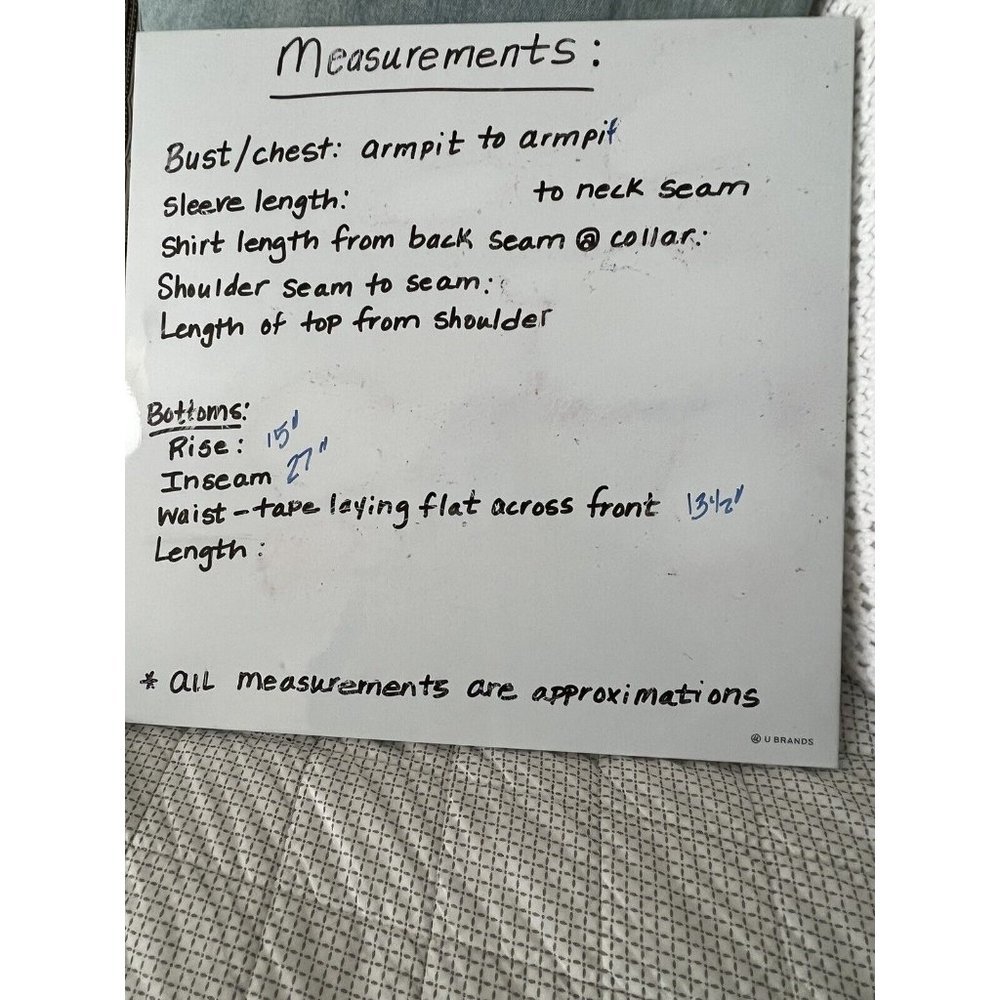 Measurements:
Bust/chest: armpit to armpit
Sleeve length: to neck seam
Shirt length from back seam @ collar:
Shoulder seam to seam:
Length of top from shoulder
Bottoms:
Rise: 15"
Inseam 27"
Waist - tape laying flat across front 13 1/2"
Length:
* All measurements are approximations
U BRANDS